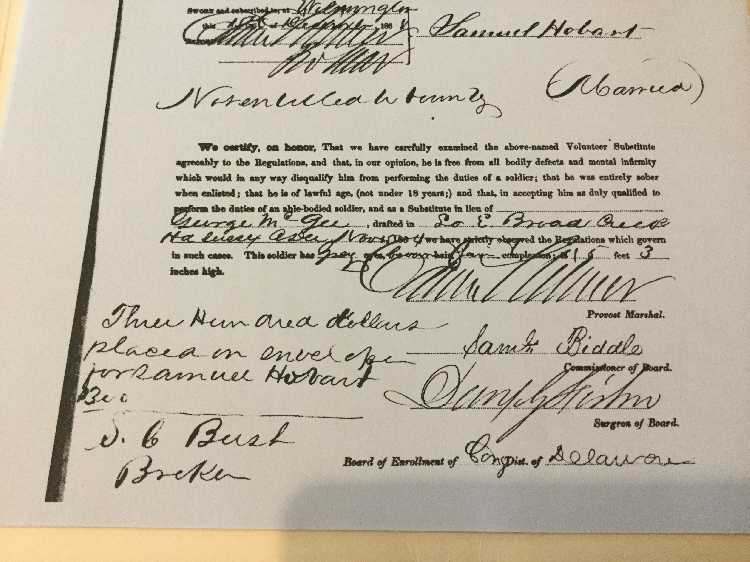 Sworn and subscribed to at Wilmington
this day of 186
Samuel Hobart
Not entitled to bounty (Married)
We certify, on honor, That we have carefully examined the above-named Volunteer Substitute
agreeably to the Regulations, and that, in our opinion, he is free from all bodily defects and mental infirmity
which would in any way disqualify him from performing the duties of a soldier; that he was entirely sober
when enlisted; that he is of lawful age, (not under 18 years;) and that, in accepting him as duly qualified to
perform the duties of an able-bodied soldier, and as a Substitute in lieu of
George McGee, drafted in E Broad Creek
we have strictly observed the Regulations which govern
in such cases. This soldier has eyes, hair, complexion; is 5 feet 3
inches high.
Provost Marshal.
Three Hundred dollars
placed on envelope
for Samuel Hobart
Saml Biddle
Commissioner of Board.
300
Surgeon of Board.
S. C Bush
Broker
Board of Enrollment of Cong Dist. of Delaware